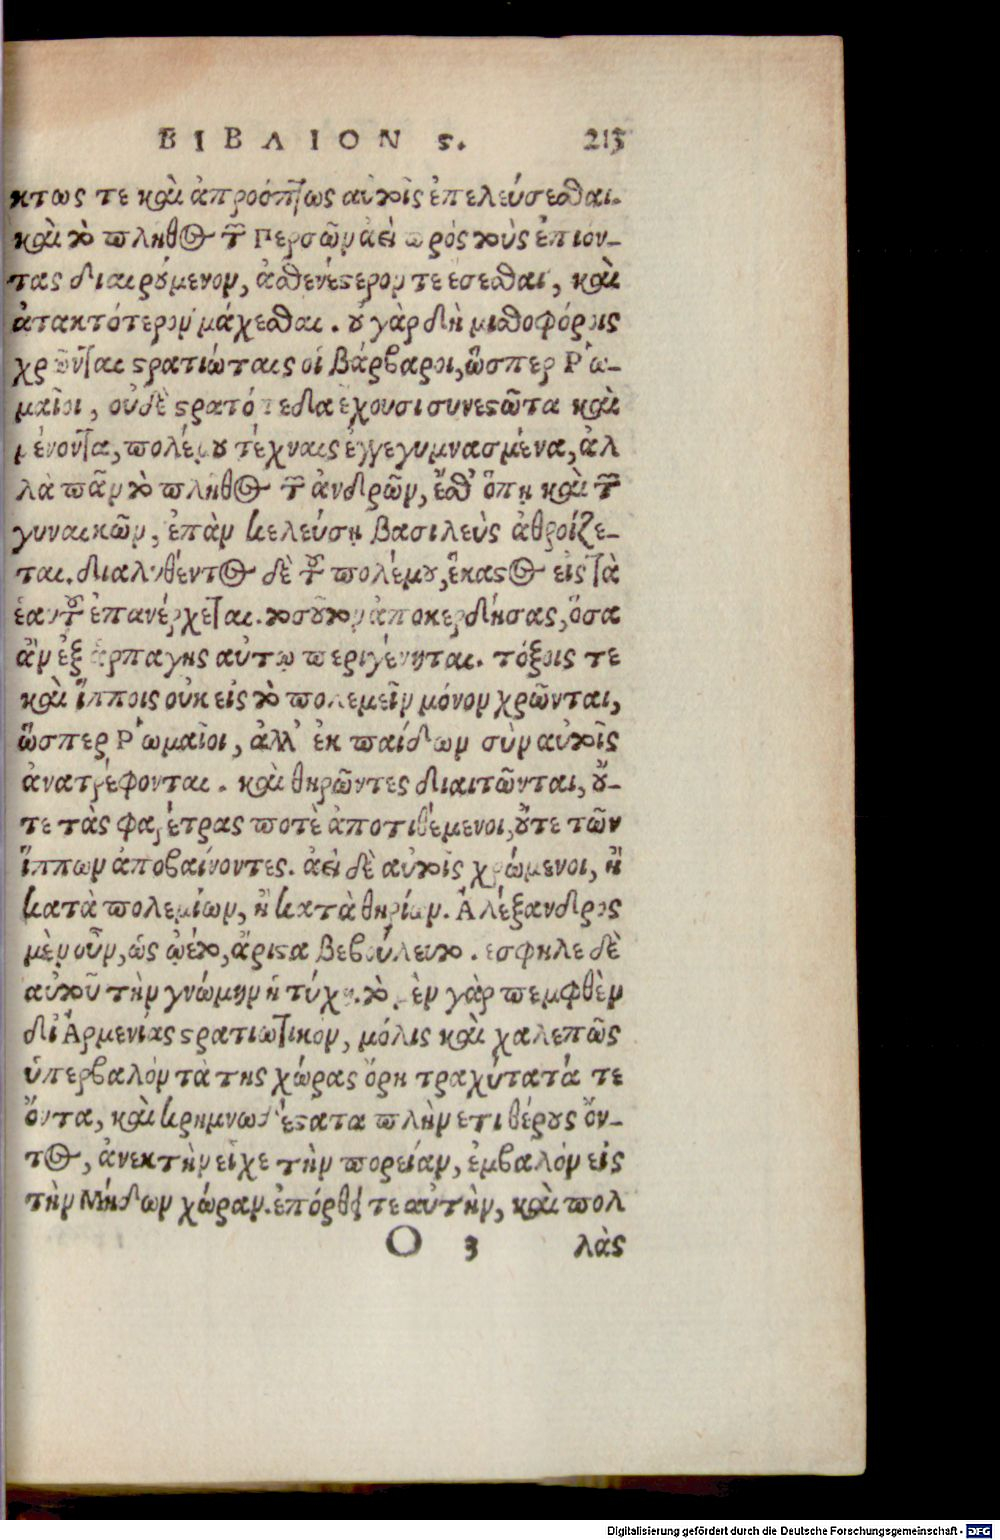 ΒΙΒΛΙΟΝ ϛ. 213
κτως τε καὶ ἀπροόπτως αὐτοῖς ἐπελεύσεσθαι.
καὶ τὸ πλῆθος τῶν Περσῶν ἀεὶ πρὸς τοὺς ἐπιόν-
τας διαιρούμενον, ἀσθενέστερόν τε ἔσεσθαι, καὶ
ἀτακτότερον μάχεσθαι. οὐ γὰρ δὴ μισθοφόροις
χρῶνται στρατιώταις οἱ Βάρβαροι, ὥσπερ Ῥω-
μαῖοι, οὐδὲ στρατόπεδα ἔχουσι συνεστῶτα καὶ
μένοντα, πολέμου τέχναις ἐγγεγυμνασμένα, ἀλ
λὰ πᾶν τὸ πλῆθος τῶν ἀνδρῶν, ἔσθ' ὅπη καὶ τῶν
γυναικῶν, ἐπὰν κελεύσῃ βασιλεὺς ἀθροίζε-
ται. διαλυθέντος δὲ τοῦ πολέμου, ἕκαστος εἰς τὰ
ἑαυτοῦ ἐπανέρχεται. τοσοῦτον ἀποκερδήσας, ὅσα
ἂν ἐξ ἁρπαγῆς αὐτῷ περιγένηται. τόξοις τε
καὶ ἵπποις οὐκ εἰς τὸ πολεμεῖν μόνον χρῶνται,
ὥσπερ Ῥωμαῖοι, ἀλλ' ἐκ παίδων σὺν αὐτοῖς
ἀνατρέφονται. καὶ θηρῶντες διαιτῶνται, οὔ-
τε τὰς φαρέτρας ποτὲ ἀποτιθέμενοι, οὔτε τῶν
ἵππων ἀποβαίνοντες. ἀεὶ δὲ αὐτοῖς χρώμενοι, ἢ
κατὰ πολεμίων, ἢ κατὰ θηρίων. Ἀλέξανδρος
μὲν οὖν, ὡς ᾤετο, ἄριστα βεβούλευτο. ἔσφηλε δὲ
αὐτοῦ τὴν γνώμην ἡ τύχη. τὸ μὲν γὰρ πεμφθὲν
δι' Ἀρμενίας στρατιωτικὸν, μόλις καὶ χαλεπῶς
ὑπερβαλὸν τὰ τῆς χώρας ὄρη τραχύτατά τε
ὄντα, καὶ κρημνωδέστατα πλὴν ἔτι θέρους ὄν-
τος, ἀνεκτὴν εἶχε τὴν πορείαν, ἐμβαλὸν εἰς
τὴν Μήδων χώραν. ἐπόρθει τε αὐτὴν, καὶ πολ
O 3 λὰς
Digitalisierung gefördert durch die Deutsche Forschungsgemeinschaft - DFG